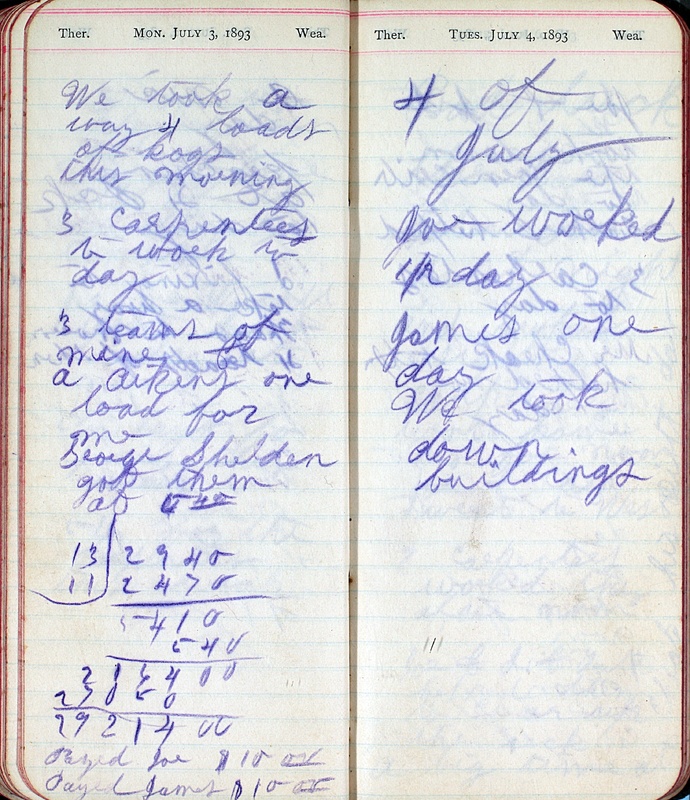 Ther. Mon. July 3, 1893 Wea.
We took a
way 4 loads
of hogs
this morning
3 Carpenters
to work to
day
3 teams of
mine
a Aikens one
load for
me
George Shelden
got them
at 5 40
13 2940
11 2470
5410
5 40
2 1 6 4 0 0
2 7 0 5 0
2 9 2 1 4 00
Payed Joe $10 00
Payed James $10 00
Ther. Tues. July 4, 1893 Wea.
4 of
July
Joe worked
1/2 day
James one
day
We took
down
buildings